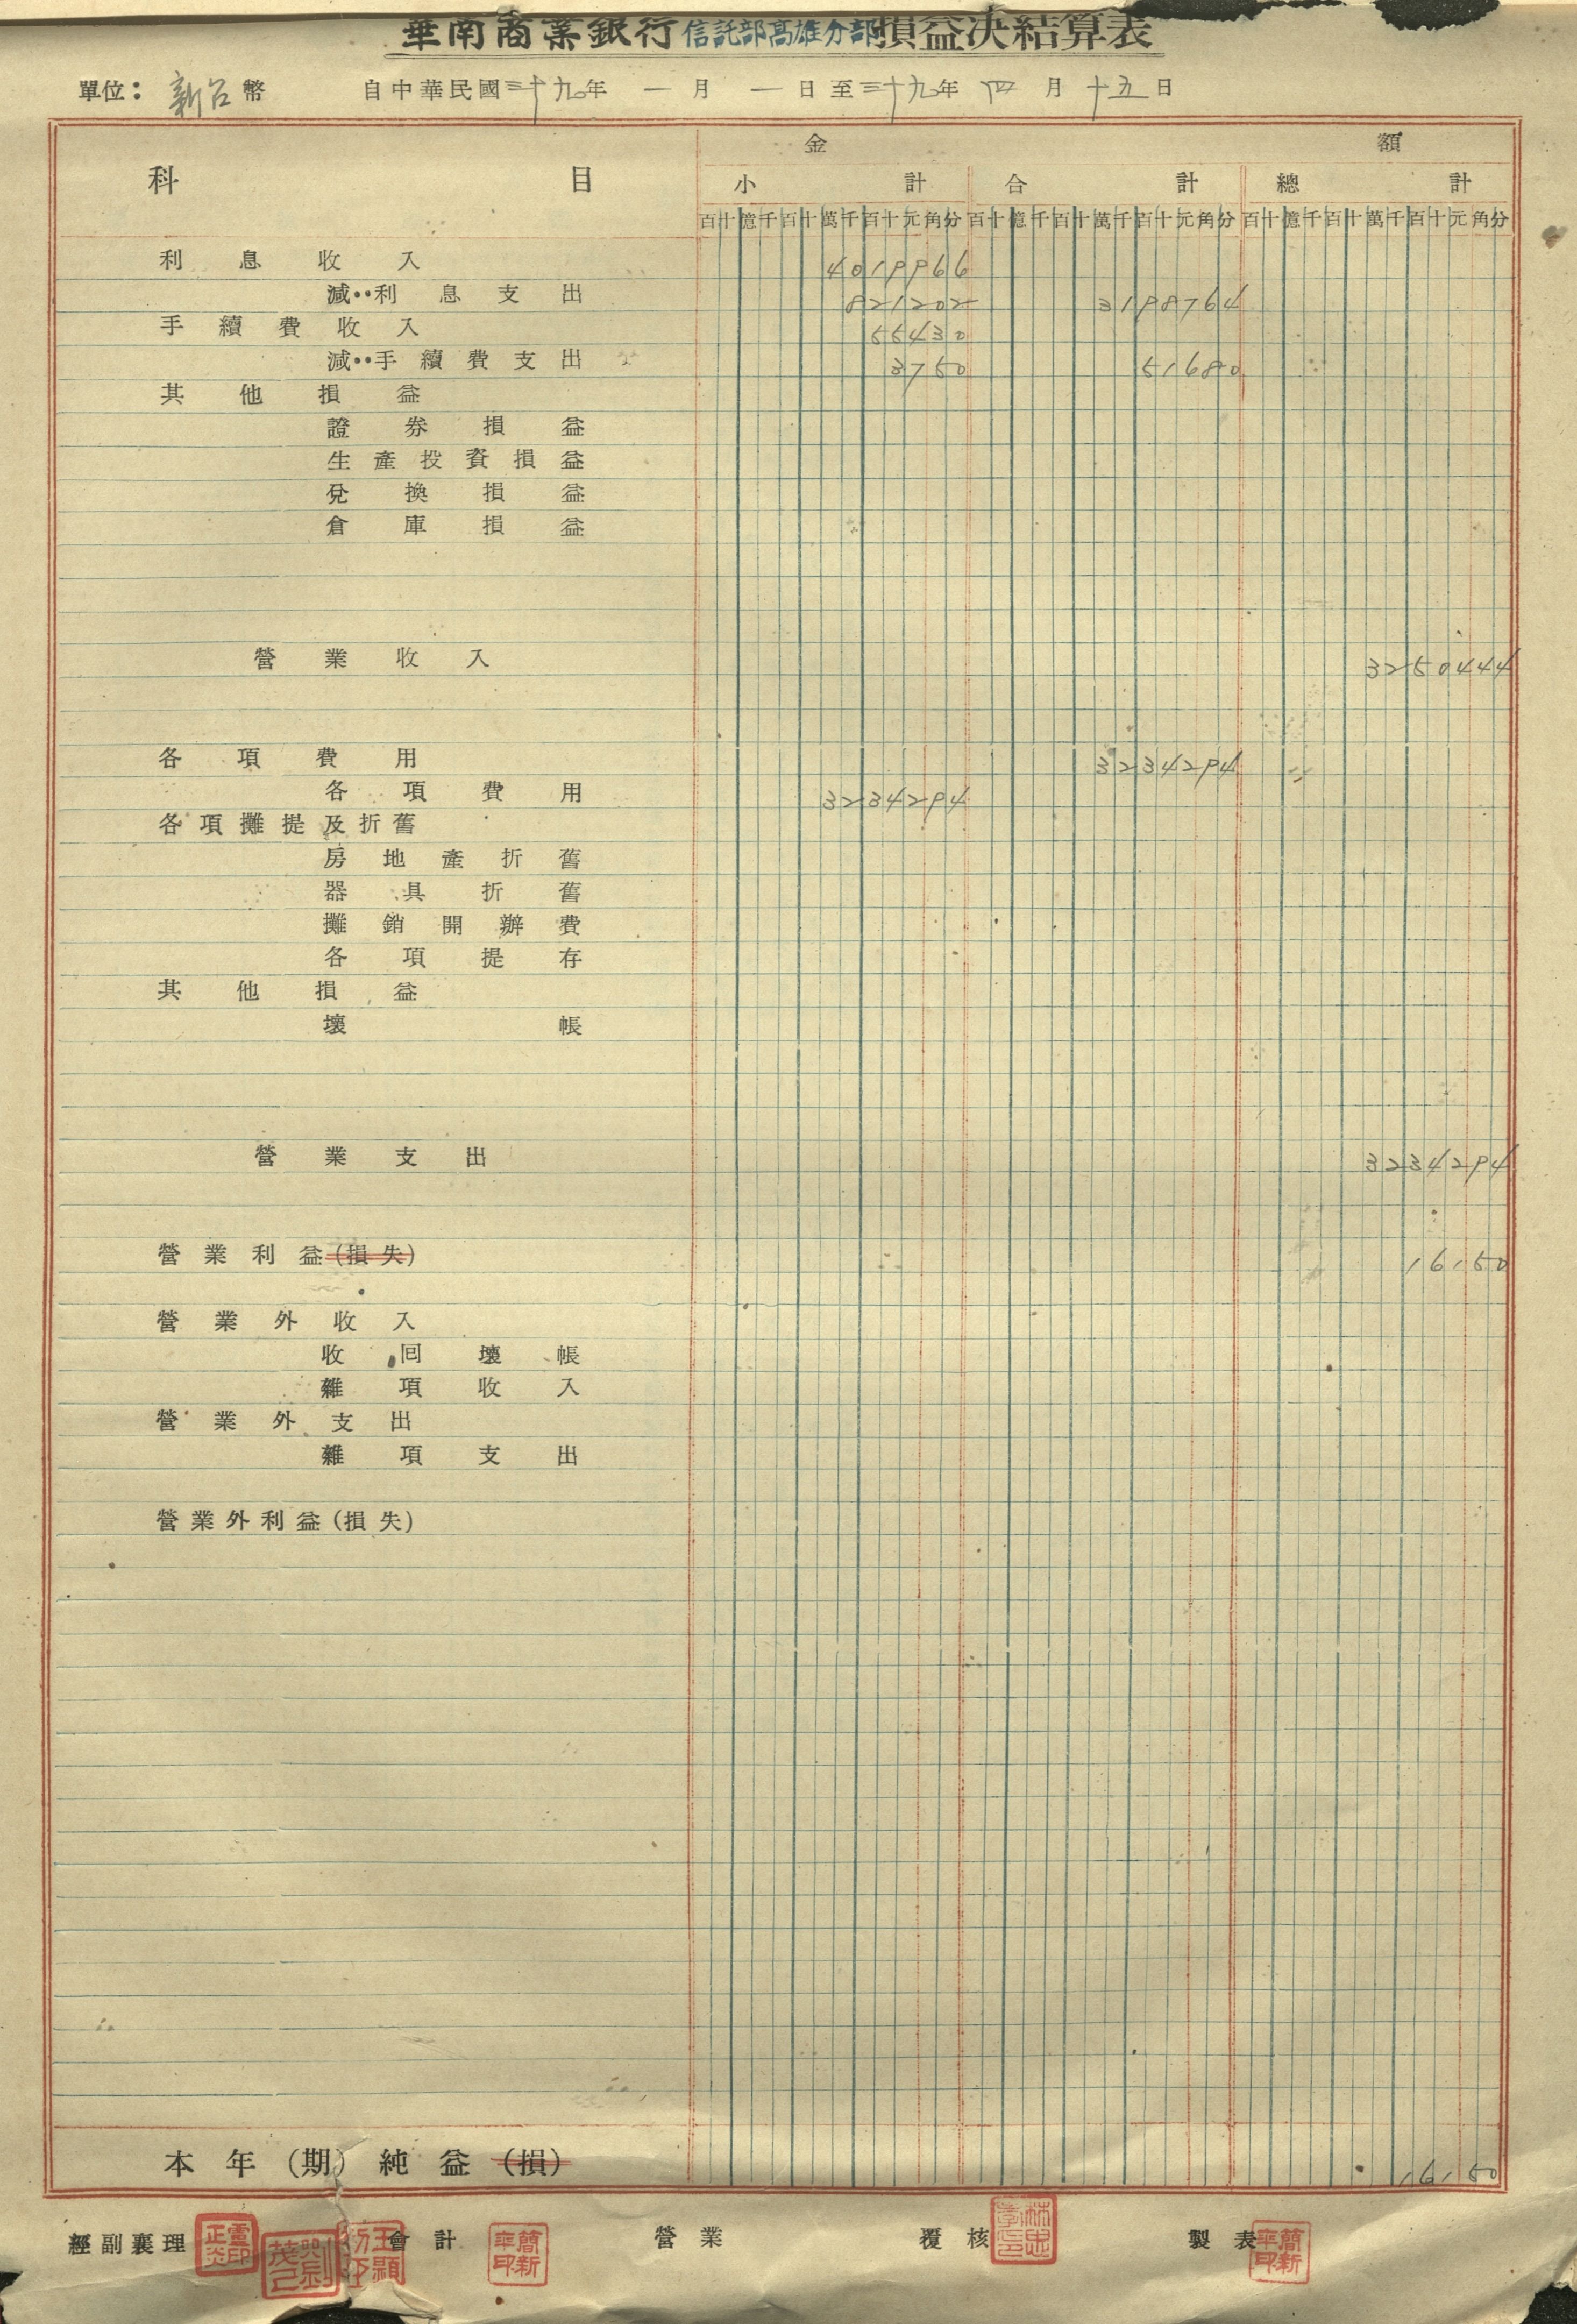 華南商業銀行信託部高雄分部損益決結算表
單位：新台幣 自中華民國三十九年一月一日至三十九年四月十五日
金額
科目 小計 合計 總計
百十億千百十萬千百十元角分 百十億千百十萬千百十元角分 百十億千百十萬千百十元角分
利息收入 4019966
減：利息支出 821202 3198764
手續費收入 55430
減：手續費支出 3750 51680
其他損益
證券損益
生產投資損益
兌換損益
倉庫損益
營業收入 3250444
各項費用 3234294
各項費用 3234294
各項攤提及折舊
房地產折舊
器具折舊
攤銷開辦費
各項提存
其他損益
壞帳
營業支出 3234294
營業利益(損失) 16150
營業外收入
收回壞帳
雜項收入
營業外支出
雜項支出
營業外利益(損失)
本年(期)純益(損) 16150
經副襄理 會計 營業 覆核 製表